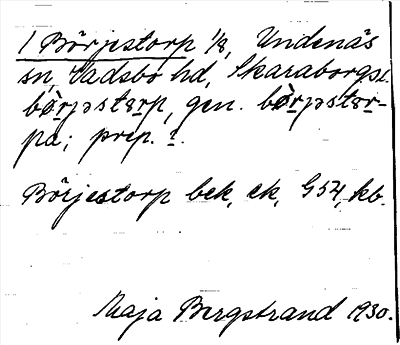 1 Börjestorp 1/8, Undenäs
sn, Vadsbo hd, Skaraborgs l.
bö̀rjəstɷrp, gen. bö̀rjəstɷr-
pa; prep. i.
Börjestorp bek, ek, G54, kb.
Maja Bergstrand 1930.